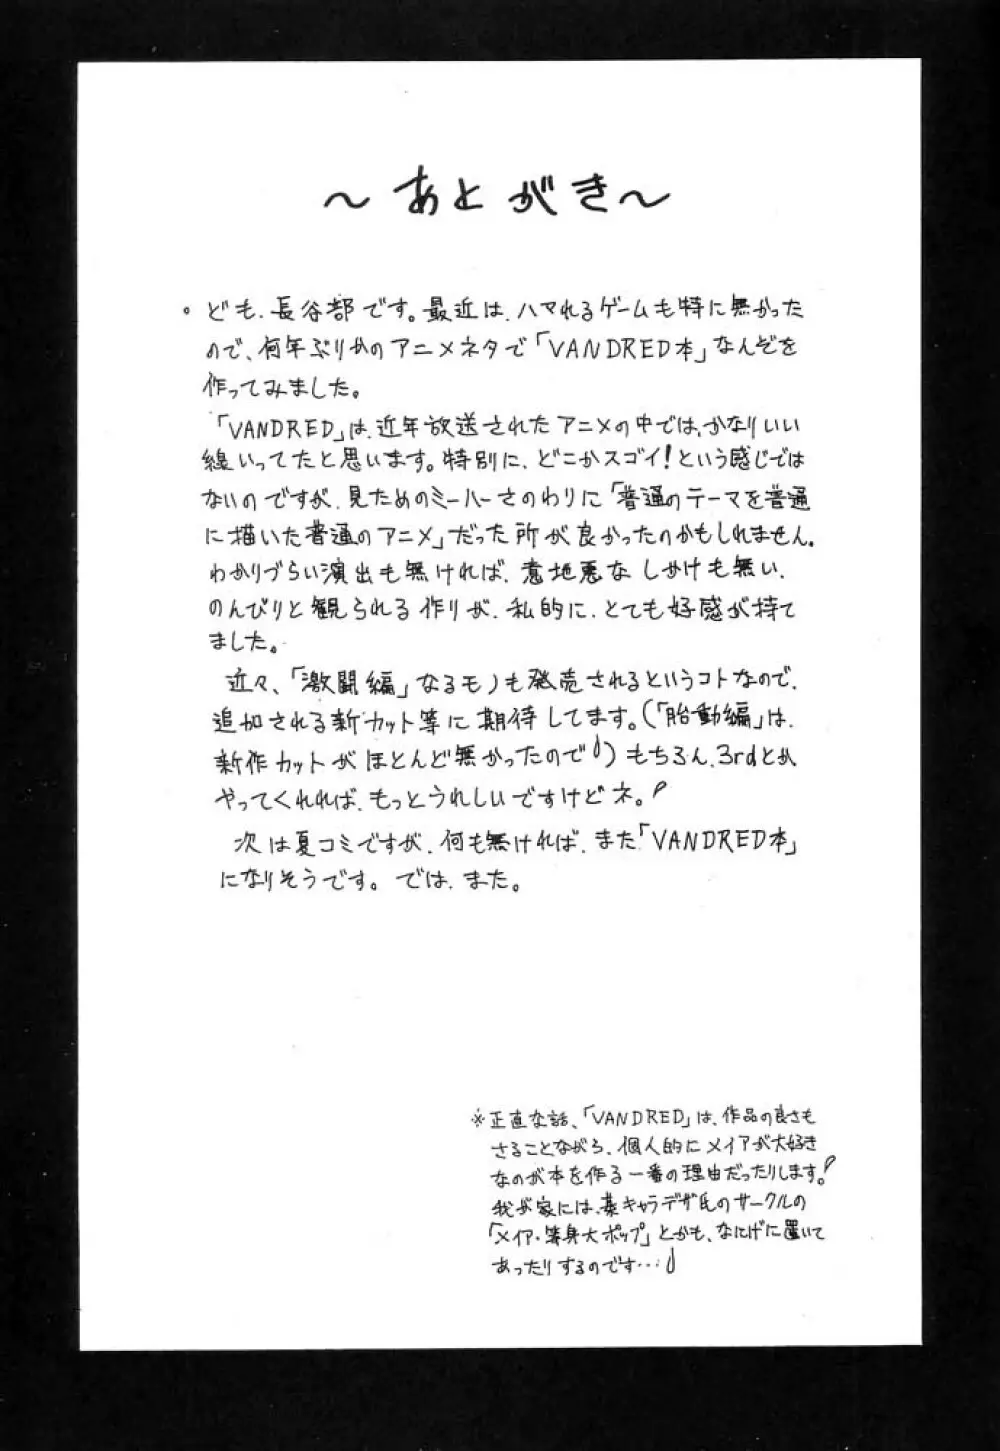 ～あとがき～
。ども、長谷部です。最近は、ハマれるゲームも特に無かった
ので、何年ぶりかのアニメネタで「VANDRED本」なんぞを
作ってみました。
「VANDRED」は、近年放送されたアニメの中では、かなりいい
線いってたと思います。特別に、どこかスゴイ!という感じでは
ないのですが、見ためのミーハーさのわりに「普通のテーマを普通
に描いた普通のアニメ」だった所が良かったのかもしれません。
わかりづらい演出も無ければ、意地悪なしかけも無い、
のんびりと観られる作りが、私的に、とても好感が持て
ました。
近々、「激闘編」なるモノも発売されるというコトなので、
追加される新カット等に期待してます。(「胎動編」は、
新作カットがほとんど無かったので♪)もちろん、3rdとか
やってくれれば、もっとうれしいですけどネ。!
次は夏コミですが、何も無ければ、また「VANDRED本」
になりそうです。では、また。
※正直な話、「VANDRED」は、作品の良さも
さることながら、個人的にメイアが大好き
なのが本を作る一番の理由だったりします。!
我が家には、某キャラデザ氏のサークルの
「メイア・等身大ポップ」とかも、なにげに置いて
あったりするのです…♪